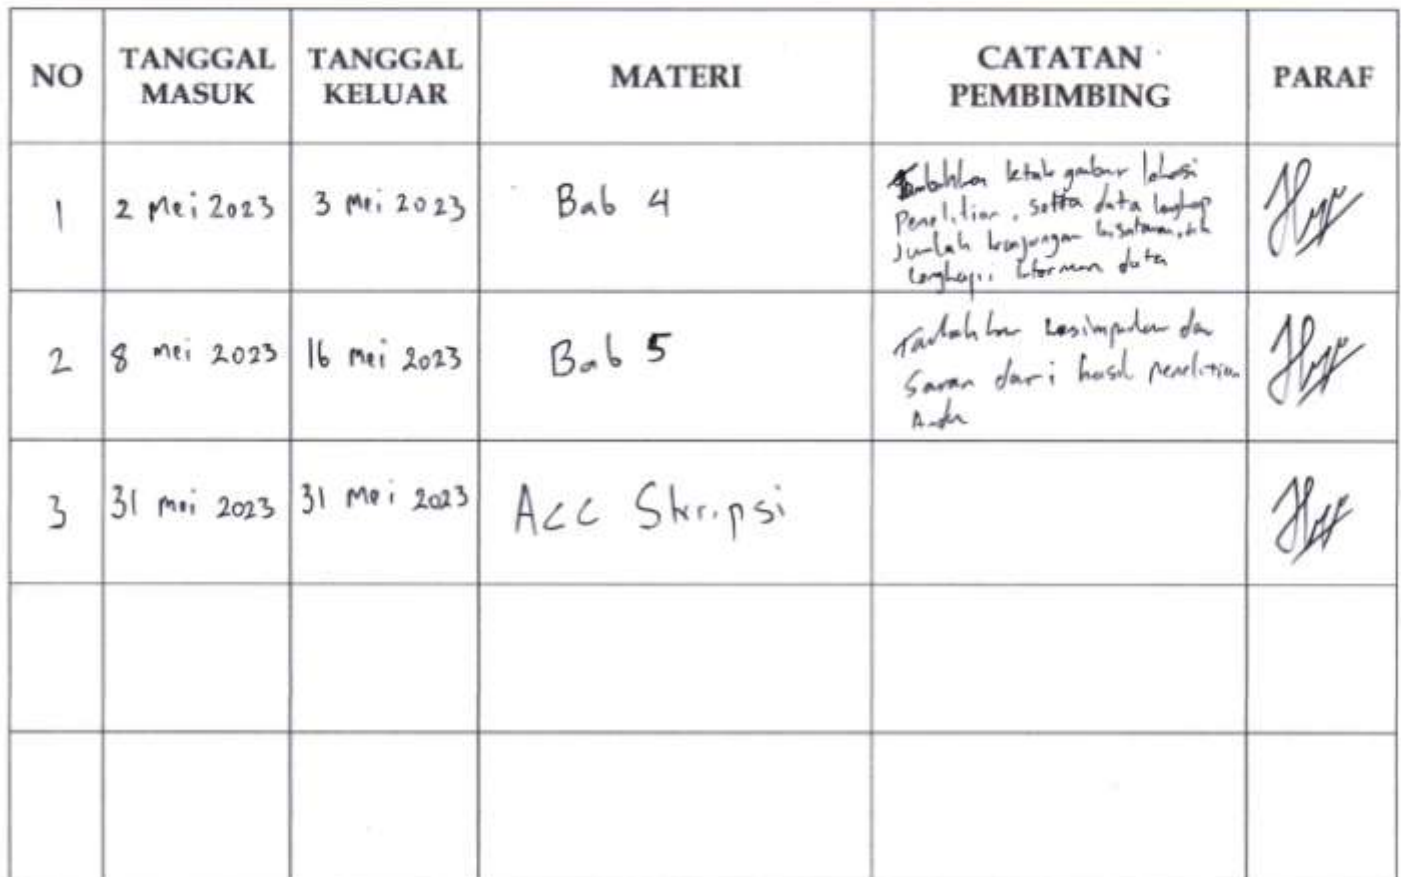 NO TANGGAL MASUK TANGGAL KELUAR MATERI CATATAN PEMBIMBING PARAF
1 2 Mei 2023 3 Mei 2023 Bab 4
Tambahkan letak gambar lokasi
Penelitian, serta data lengkap
Jumlah kunjungan wisatawan,
Lengkapi data
2 8 mei 2023 16 mei 2023 Bab 5
Tambahkan kesimpulan dan
Saran dari hasil penelitian
Anda
3 31 mei 2023 31 Mei 2023 Acc Skripsi